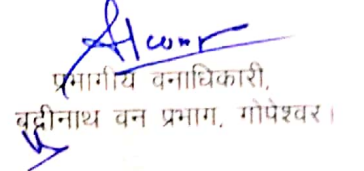 प्रभागीय वनाधिकारी,
बद्रीनाथ वन प्रभाग, गोपेश्वर।